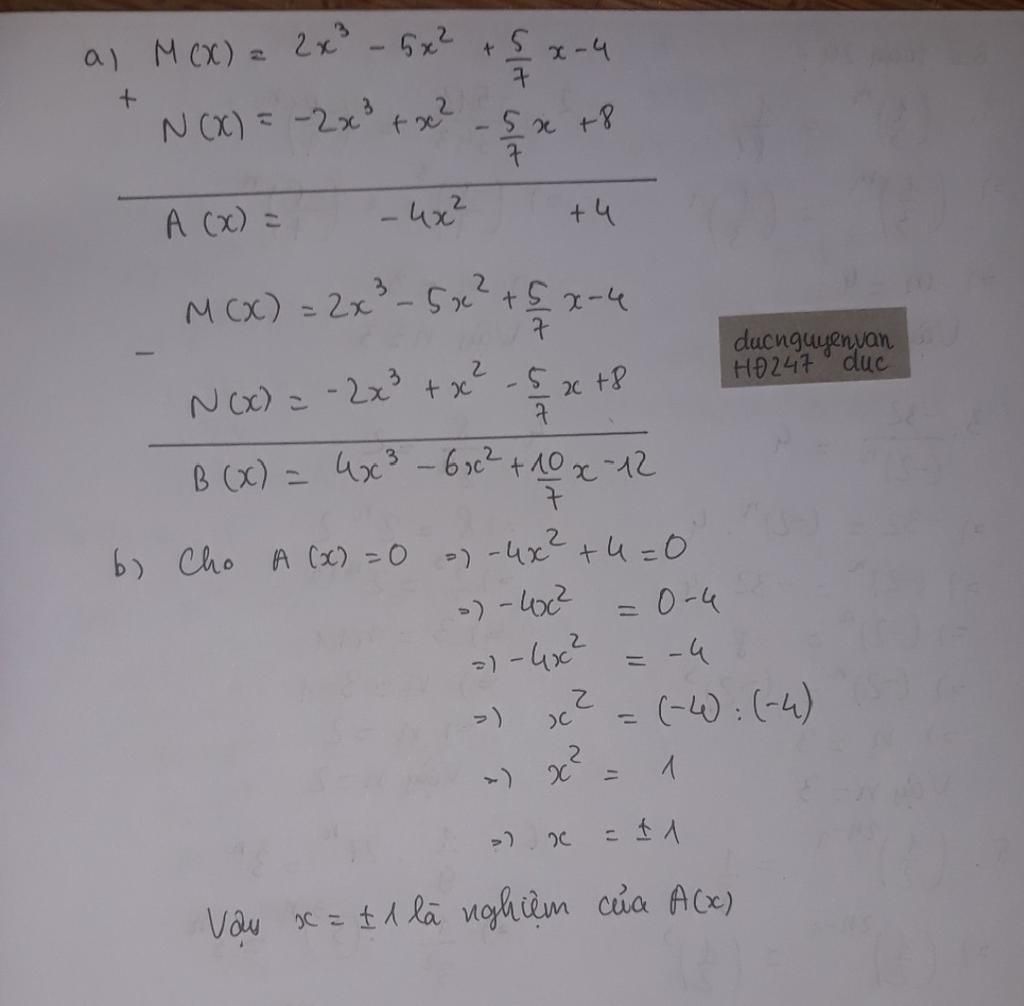 a) M(x) = 2x³ - 5x² + 5/7 x - 4
+
N(x) = -2x³ + x² - 5/7 x + 8
A(x) = - 4x² + 4
M(x) = 2x³ - 5x² + 5/7 x - 4
-
N(x) = -2x³ + x² - 5/7 x + 8
B(x) = 4x³ - 6x² + 10/7 x - 12
ducnguyenvan
HĐ247 duc
b) Cho A(x) = 0 => -4x² + 4 = 0
=> -4x² = 0 - 4
=> -4x² = -4
=> x² = (-4) : (-4)
=> x² = 1
=> x = ± 1
Vậy x = ± 1 là nghiệm của A(x)